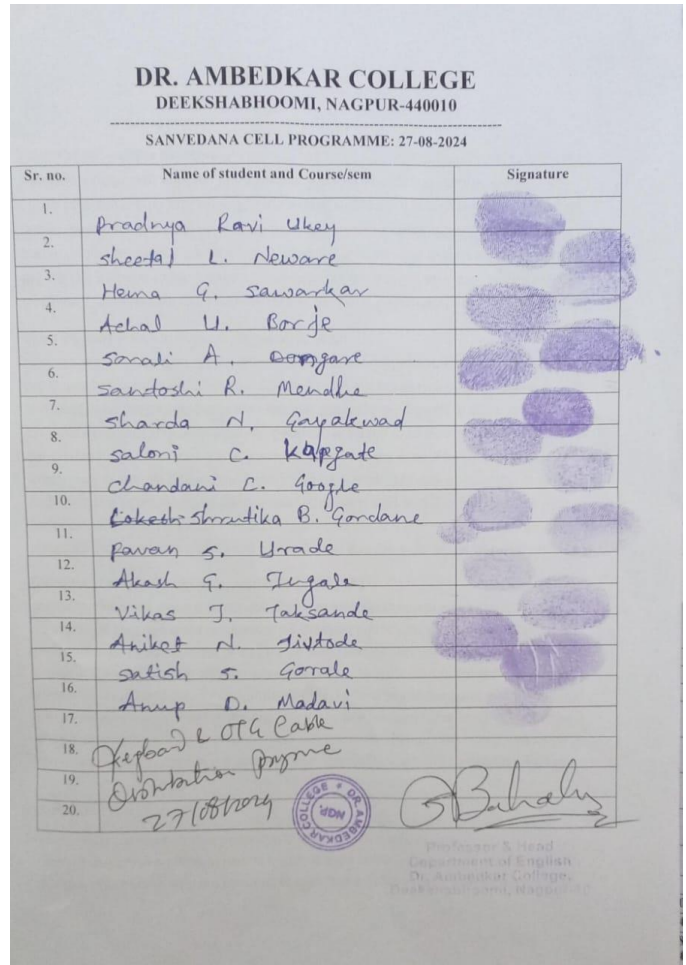 DR. AMBEDKAR COLLEGE
DEEKSHABHOOMI, NAGPUR-440010
SANVEDANA CELL PROGRAMME: 27-08-2024
Sr. no. Name of student and Course/sem Signature
1. Pradnya Ravi Ukey
2. Sheetal L. Neware
3. Hema G. Sawarkar
4. Achal U. Borje
5. Sonali A. Dongare
6. Santoshi R. Mendhe
7. Sharda N. Gayakwad
8. Saloni C. Kapgate
9. Chandani C. Google
10. Shrutika B. Gondane
11. Pavan S. Urade
12. Akash G. Ingale
13. Vikas J. Taksande
14. Aniket N. Jivtode
15. Satish S. Gorale
16. Anup D. Madavi
17.
18. Keyboad & OTG Cable
19. Distribution
20. 27/08/2024
DR. AMBEDKAR COLLEGE
NGP
Professor & Head
Department of English
Dr. Ambedkar College,
Deekshabhoomi, Nagpur-10